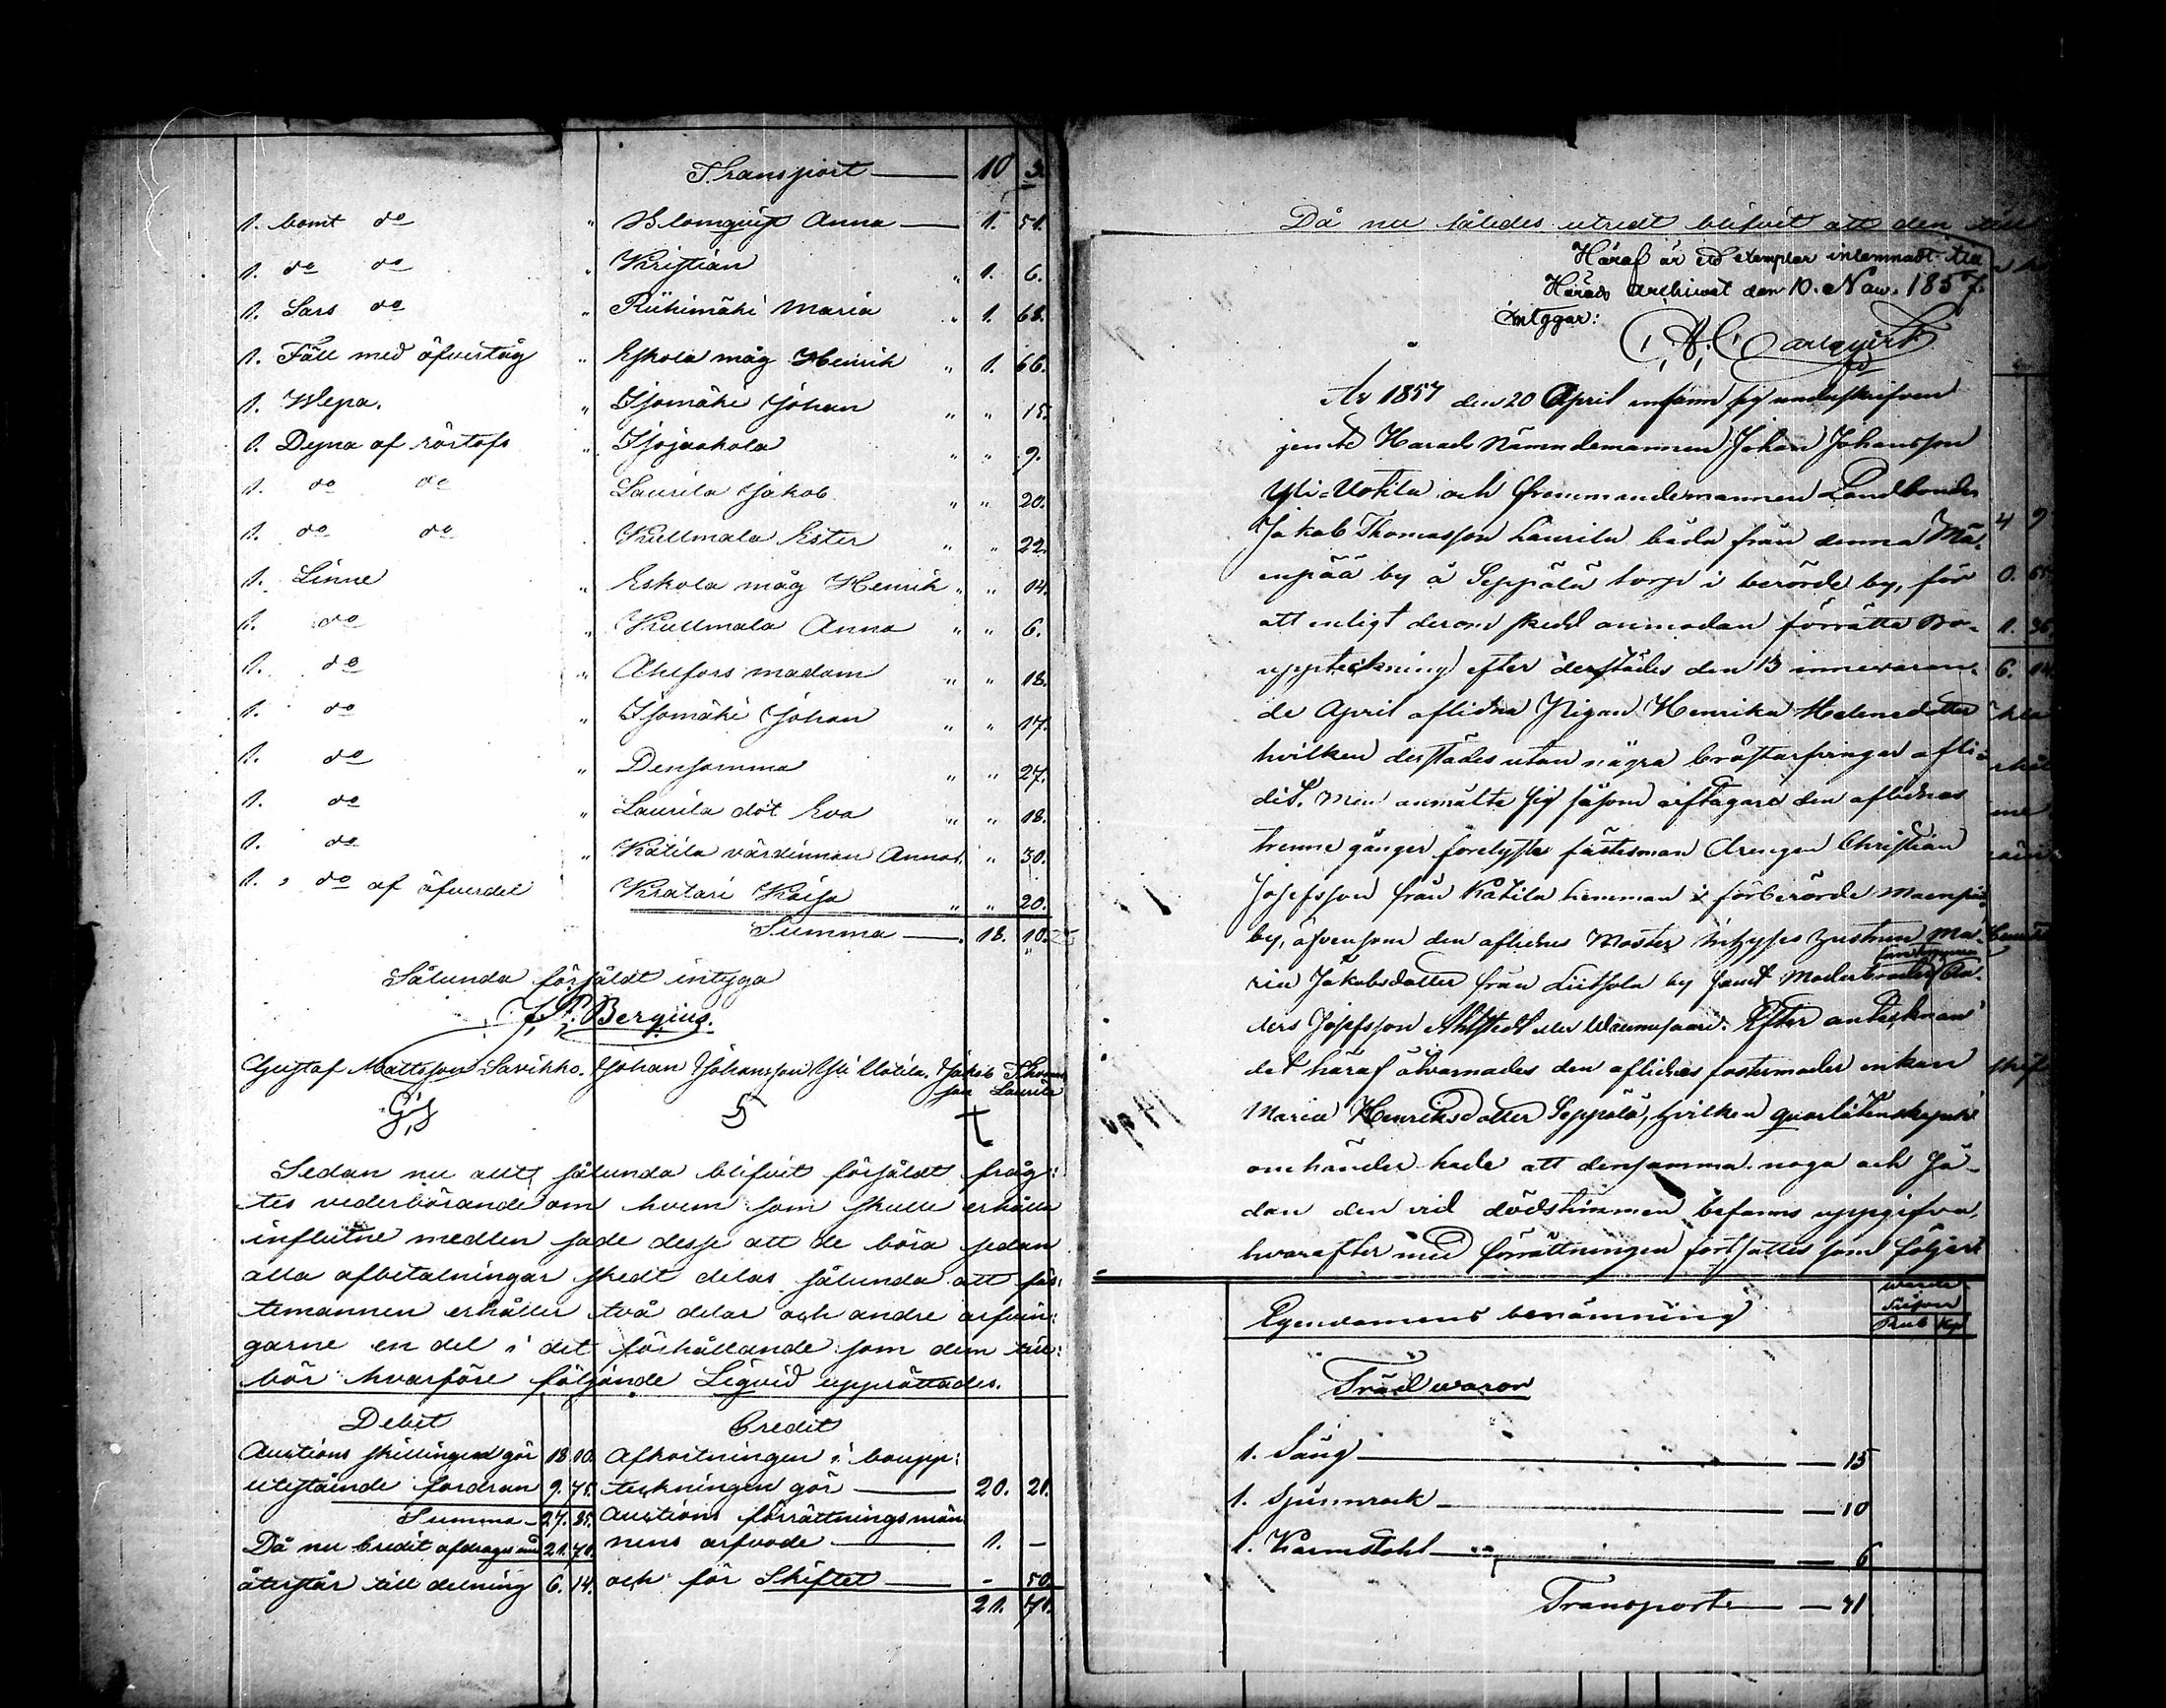 Transport — 10 3.
1. bomt do " Blomqvist Anna — 1. 51.
1. do do " Kristian " 1. 6.
1. Sars do " Riihimäki Maria " 1. 68.
1. Fäll med öfvertåg " Eskola måg Henrik " 1. 66.
1. Wepa. " Isomäki Johan " " 15.
1. Dyna af rörtofs " Isojaakola " " 9.
1. do do Laurila Jakob " " 20.
1. do do Kullmala Ester " " 22.
1. Linne " Eskola måg Henrik " " 14.
1. do " Kullmala Anna " " 6.
1. do " Ahlfors madam " " 18.
1. do " Isomäki Johan " " 17.
1. do " Densamma " " 27.
1. do " Laurila dot Eva " " 18.
1. do " Katila värdinnan Anna " 30.
1. " do af öfverdel Kratari Kaisa " " 20.
Summa — 18. 10.
Sålunda försåldt intyga
Bergius.
Gustaf Mattsson Savikko. Johan Johansson Yli Uotila. Jakob Thomas
son Laurila
Sedan nu allt sålunda blifvit försåldt fråg:
tes vederbörande om hvem som skulle erhålla
influtne medlen sade desse att de böra sedan
alla afbetalningar skedt delas sålunda att fäs:
temannen erhåller två delar och andre arfvin:
garne en del i det förhållande som dem till:
bör hvarföre följande Liqvid upprättades.
Debet Credit
Auctions skillingen gör 18 10. Afkortningen i boupp:
utestående fordran 9. 75. teckningen gör — 20. 21.
Summa — 27. 85. Auctions förrättningsmän
Då nu Credit afdrages 21. 71. nens arfvode — 1. —
återstår till delning 6. 14. och för Skiftet — - 50
21. 71.
Då nu således utredt blifvit att den till
Häraf är ett exemplar inlemnadt till
Härads Archivet den 10. Nov. 1857.
Intygar:
År 1857 den 20 April infann sig underskrifven
jemte Harads Nämndemannen Johan Johansson
Yli-Uotila och frammandemannen Landbonden
Jakob Thomasson Laurila båda från denna Mä-
enpää by å Seppälä torp i berörde by, för
att enligt derom skedd anmodan förrätta Bo-
uppteckning efter derstädes den 13 innevaran-
de April aflidna Pigan Henrika Helenedotter
hvilken derstädes utan några bröstarfvingar afli-
dit. Men anmälte sig såsom arftagare den aflidnas
trenne gånger förelyste fästesman Drengen Christian
Josefsson från Katila hemman i förberörde Maenpää
by, äfvensom den aflidnes Moster Hustrun Ma-
ria Jakobsdotter från Liitsola by samt Moderbroder An-
ders Josefsson Ahlstedt eller Efter antecknan-
det häraf åtvarnades den aflidnes fostermoder enkan
Maria Henriksdotter Seppälä, hvilken quarlåtenskapen
omhänder hade att densamma noga och så-
dan den vid dödstimmen befanns uppgifva,
hvarefter med förrättningen fortsattes som följer:
Egendomens benämning
Rub Kop
Träd waror
1. Säng — 15
1. Spinnrock — 10
1. Karmstohl — 6
Transport — 31